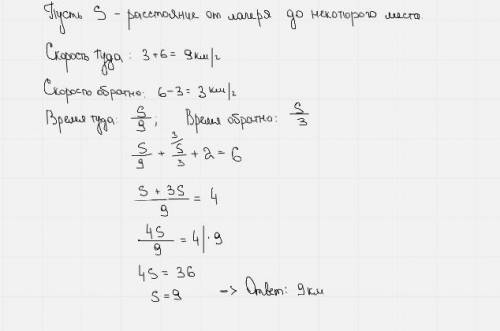 Пусть S - расстояние от лагеря до некоторого места.
Скорость туда: 3+6= 9 км/г
Скорость обратно: 6-3= 3 км/г
Время туда: S/9; Время обратно: S/3
S/9 + S/3 (3/) + 2 = 6
S + 3S / 9 = 4
4S/9 = 4 | · 9
4S = 36
S = 9 -> Ответ: 9 км